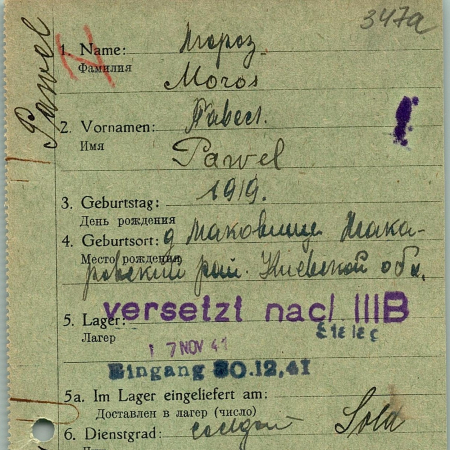 347a
Pawel
1. Name: Мороз
Фамилия
Moros
2. Vornamen: Павел.
Имя
Pawel
3. Geburtstag: 1919.
День рождения
4. Geburtsort: д Маковище Мака-
Место рождения
ровский рай. Киевской обл.
versetzt nach IIIB
5. Lager:
Лагерь
17 NOV 41
Eingang 30.12.41
5a. Im Lager eingeliefert am:
Доставлен в лагерь (число)
6. Dienstgrad: солдат Sold